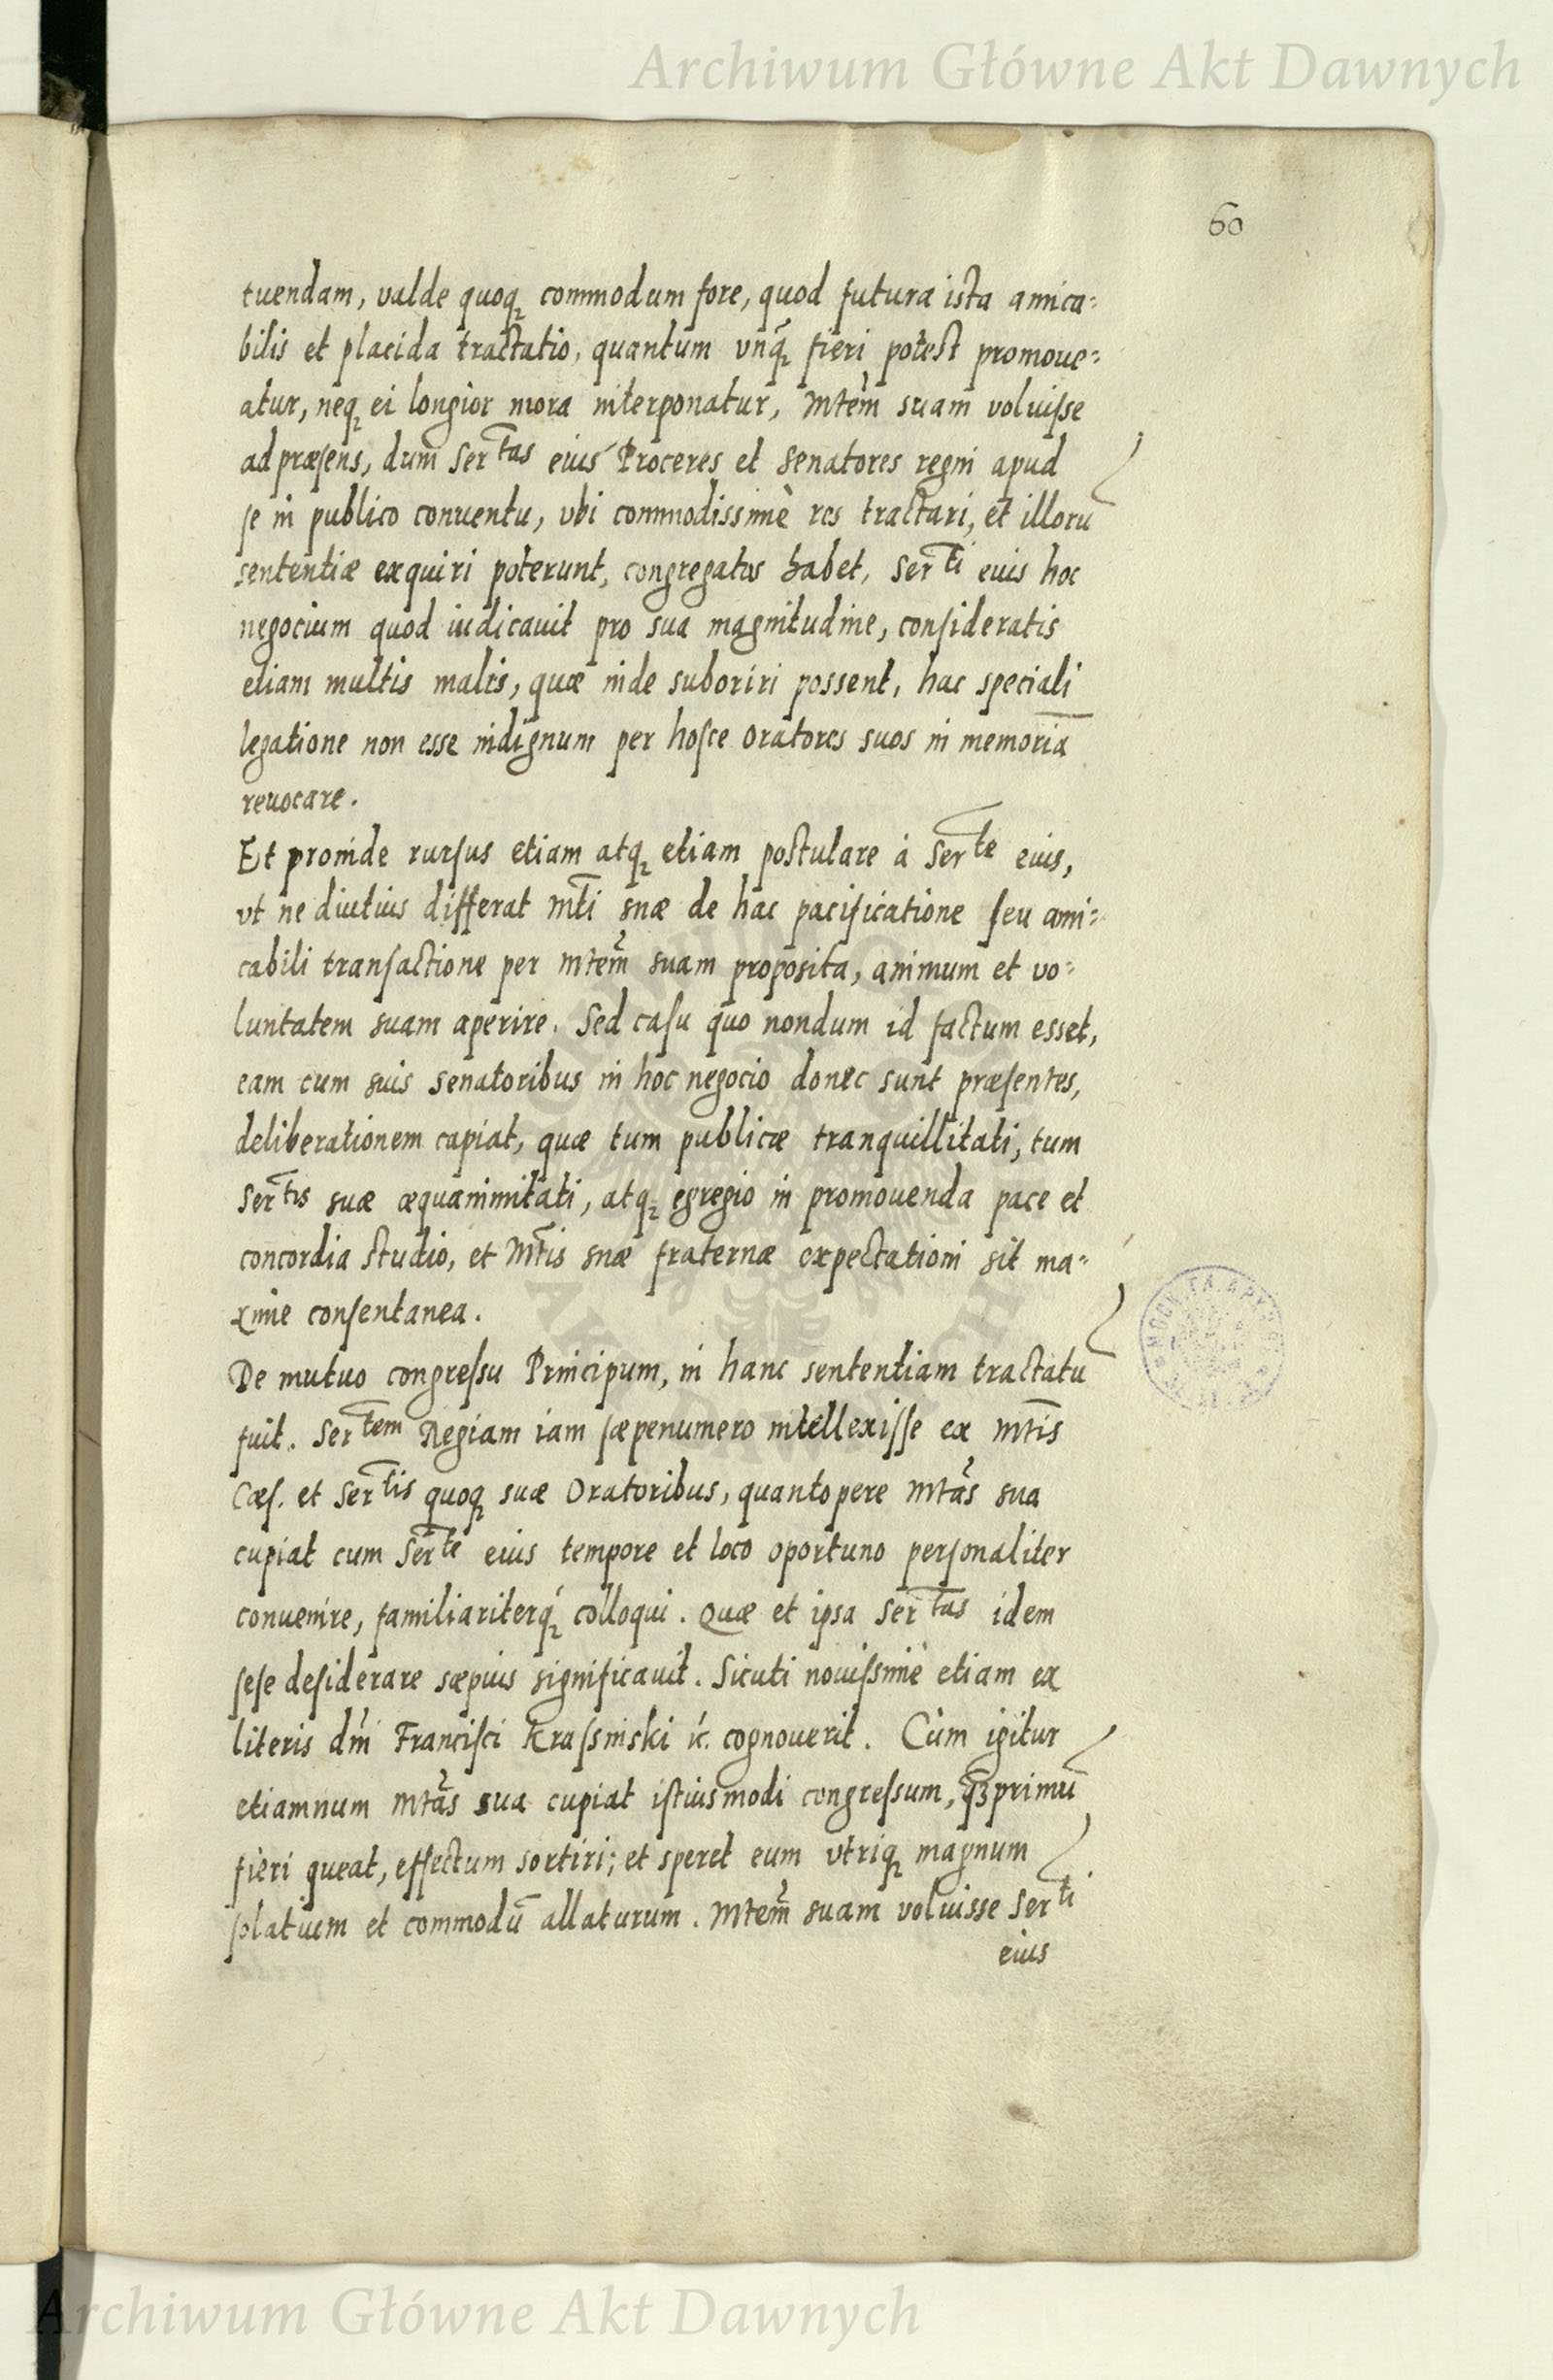 Archiwum Główne Akt Dawnych
60
tuendam, valde quoq; commodum fore, quod futura ista amica=
bilis et placida tractatio, quantum vnq̃; fieri potest promoue=
atur, neq; ei longior mora interponatur, Mtem̃ suam voluisse
ad præsens, dum Ser^tas eius Proceres et Senatores regni apud
se in publico conuentu, vbi commodissimè res tractari, et illorũ
sententiæ exquiri poterunt, congregatos habet, Ser^ti eius hoc
negocium quod iudicauit pro sua magnitudine, consideratis
etiam multis malis, quæ inde suboriri possent, hac speciali
legatione non esse indignum per hosce Oratores suos in memoriã
reuocare.
Et proinde rursus etiam atq; etiam postulare à Ser^te eius,
vt ne diutius differat Mti suæ de hac pacificatione seu ami=
cabili transactione per Mtem̃ suam proposita, animum et vo=
luntatem suam aperire. Sed casu quo nondum id factum esset,
eam cum suis Senatoribus in hoc negocio donec sunt præsentes,
deliberationem capiat, quæ tum publicæ tranquillitati, tum
Ser^tis suæ æquanimitati, atq; egregio in promouenda pace et
concordia studio, et Mtis suæ fraternæ expectationi sit ma=
xime consentanea.
De mutuo congressu Principum, in hanc sententiam tractatũ
fuit. Ser^tem Regiam iam sæpenumero intellexisse ex Mtis
Cæs. et Ser^tis quoq; suæ Oratoribus, quantopere Mtas sua
cupiat cum Ser^te eius tempore et loco oportuno personaliter
conuenire, familiariterq́; colloqui. Quæ et ipsa Ser^tas idem
sese desiderare sæpius significauit. Sicuti nouissimè etiam ex
literis dñi Francisci Krassinski &c. cognouerit. Cùm igitur
etiamnum Mtas sua cupiat istiusmodi congressum, q̃primũ
fieri queat, effectum sortiri; et speret eum vtriq; magnum
solatium et commodũ allaturum. Mtem̃ suam voluisse Ser^ti
eius
Archiwum Główne Akt Dawnych